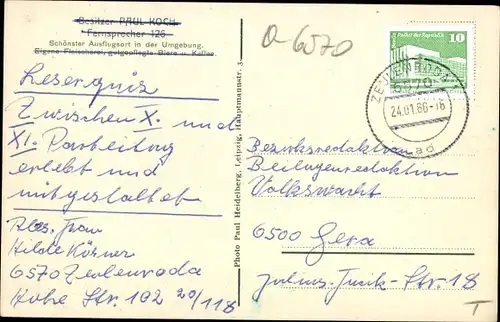 Besitzer PAUL KOCH
Fernsprecher 126
Schönster Ausflugsort in der Umgebung.
Eigene Fleischerei, gutgepflegte Biere u. Kaffee.
O-6570
10
Palast der Republik
ZEULENRODA
6570
24.01.86-18
ad
Leserquiz
Zwischen X. und
XI. Parteitag
erlebt und
mitgestaltet
Abs. Frau
Hilde Körner
6570 Zeulenroda
Hohe Str. 102 20/118
Photo Paul Heidelberg, Leipzig, Hauptmannstr. 3
Bezirksredaktion
Beilagenredaktion
Volkswacht
6500 Gera
Julius-Fucik-Str. 18
T